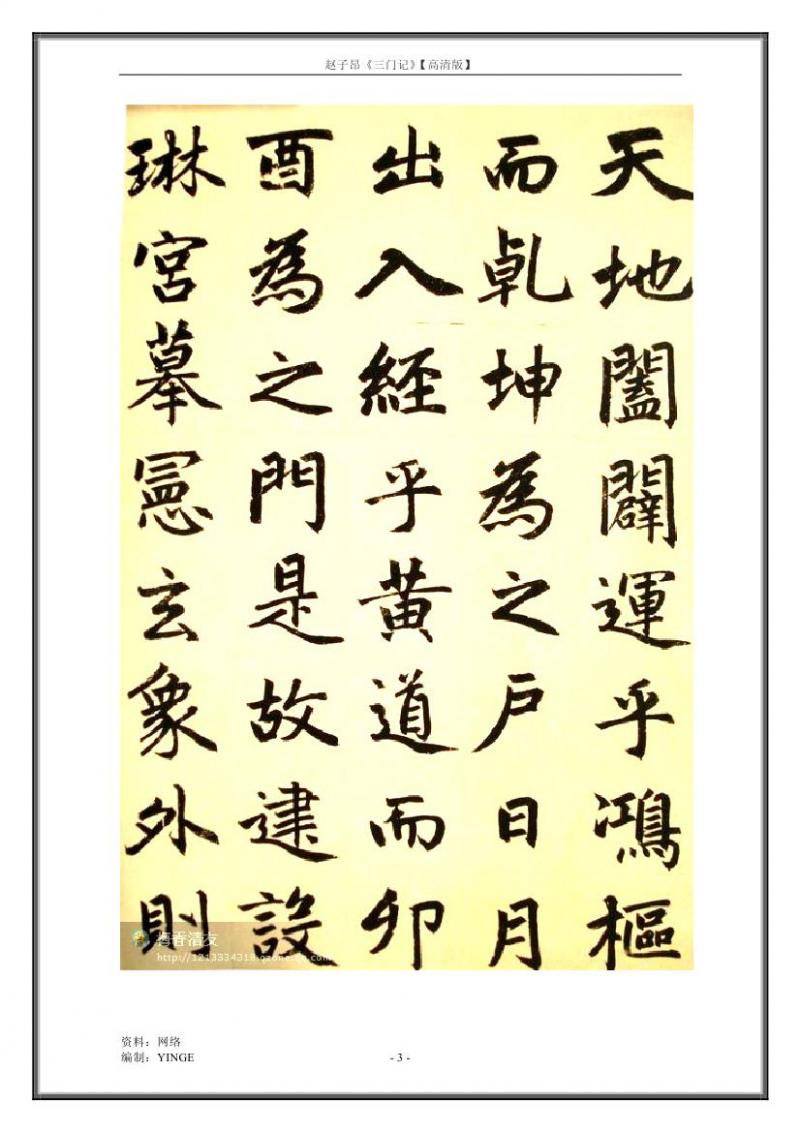 赵子昂《三门记》【高清版】
天地闔闢運乎鴻樞
而乹坤為之戶日月
出入經乎黄道而卯
酉為之門是故建設
琳宮摹憲玄象外則
http://1213334318.qzone.qq.com
资料：网络
编制：YINGE
- 3 -